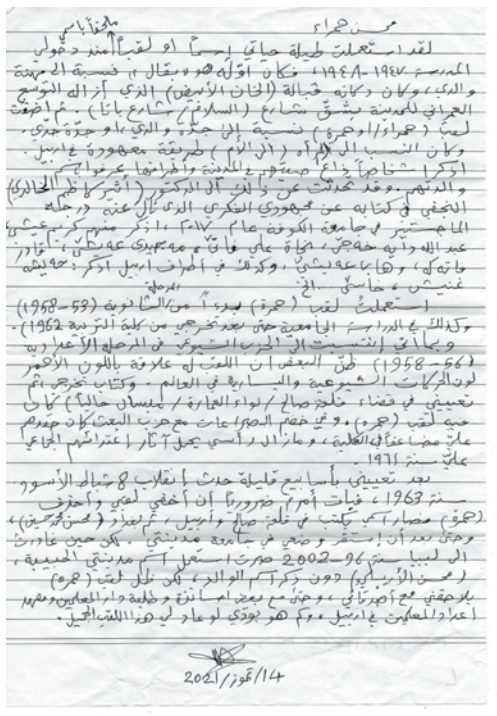 محسن حمراء
ملحقاً باسمي
لقد استعملت طيلة حياتي إسماً أو لقباً منذ دخولي
المدرسة ١٩٤٧-١٩٤٨، فكان أوله هو نسبة الى مهنة
والدي، وكان دكانه قبالة (الخان الأبيض) الذي أزاله التوسع
العمراني للمدينة بشق شارع (السلافة/ شارع باتا). ثم أضفت
لقب (حمراء/ او حمرة) نسبة إلى جدة والدي، او جدة جدي،
وكان النسب الى المرأة (الأم) طريقة معهودة في اربيل.
اذكر اشخاصاً ذاع صيتهم في المدينة وأطرافها عرفوا باسم
والدتهم. وقد تحدثت عن ذلك الى الدكتور (أثير كاظم الخالدي)
النجفي في كتابه عن مجهودي الفكري الذي نال عنه درجة
الماجستير في جامعة الكوفة عام ٢٠١٧، اذكر منهم كريم عيشي،
عبد الله دايه خه جي، نجاة علي فاتي، قادر
وكذلك في أطراف اربيل اذكر:
استعملت لقب (حمرة) بدءاً من المرحلة الثانوية (53-1958)
وكذلك في الدراسة الجامعية حتى بعد تخرجي من كلية التربية 1962).
وبما أني إنتسبت الى الحزب الشيوعي في المرحلة الاعدادية
(56-1958) ظنّ البعض ان اللقب له علاقة باللون الأحمر
لون الحركات الشيوعية واليسارية في العالم. وكتاب تخرجي ثم
تعييني في قضاء قلعة صالح/ لواء العمارة/ ميسان حالياً) كان
فيه لقب (حمرة). وفي خضم الصراعات مع حزب البعث كان حقدهم
عليّ مضاعفاً في الكلية، وما زال رأسي يحمل آثار إعتدائهم الجماعي
عليّ سنة ١٩٦١.
بعد تعييني بأسابيع قليلة حدث إنقلاب 8 شباط الأسود
سنة 1963، فبات أمراً ضرورياً أن أخفي لقبي وأحذف
(حمرة) فصار اسمي يكتب في قلعة صالح وأربيل، ثم بغداد (محسن محمد حسين)،
وحتى بعد أن استقر وضعي في جامعة مدينتي. لكن حين غادرت
الى ليبيا سنة 96-2002 صرت استعمل اسم مدينتي الحبيبة،
(محسن الأربيلي) دون ذكر اسم الوالد، لكن ظل لقب (حمرة)
يلاحقني مع أصدقائي، وحتى مع بعض اساتذة وطلبة دار المعلمين ومعهد
اعداد المعلمين في اربيل، وكم هو بودّي لو عاد لي هذا اللقب الجميل.
14/ تموز/ 2021